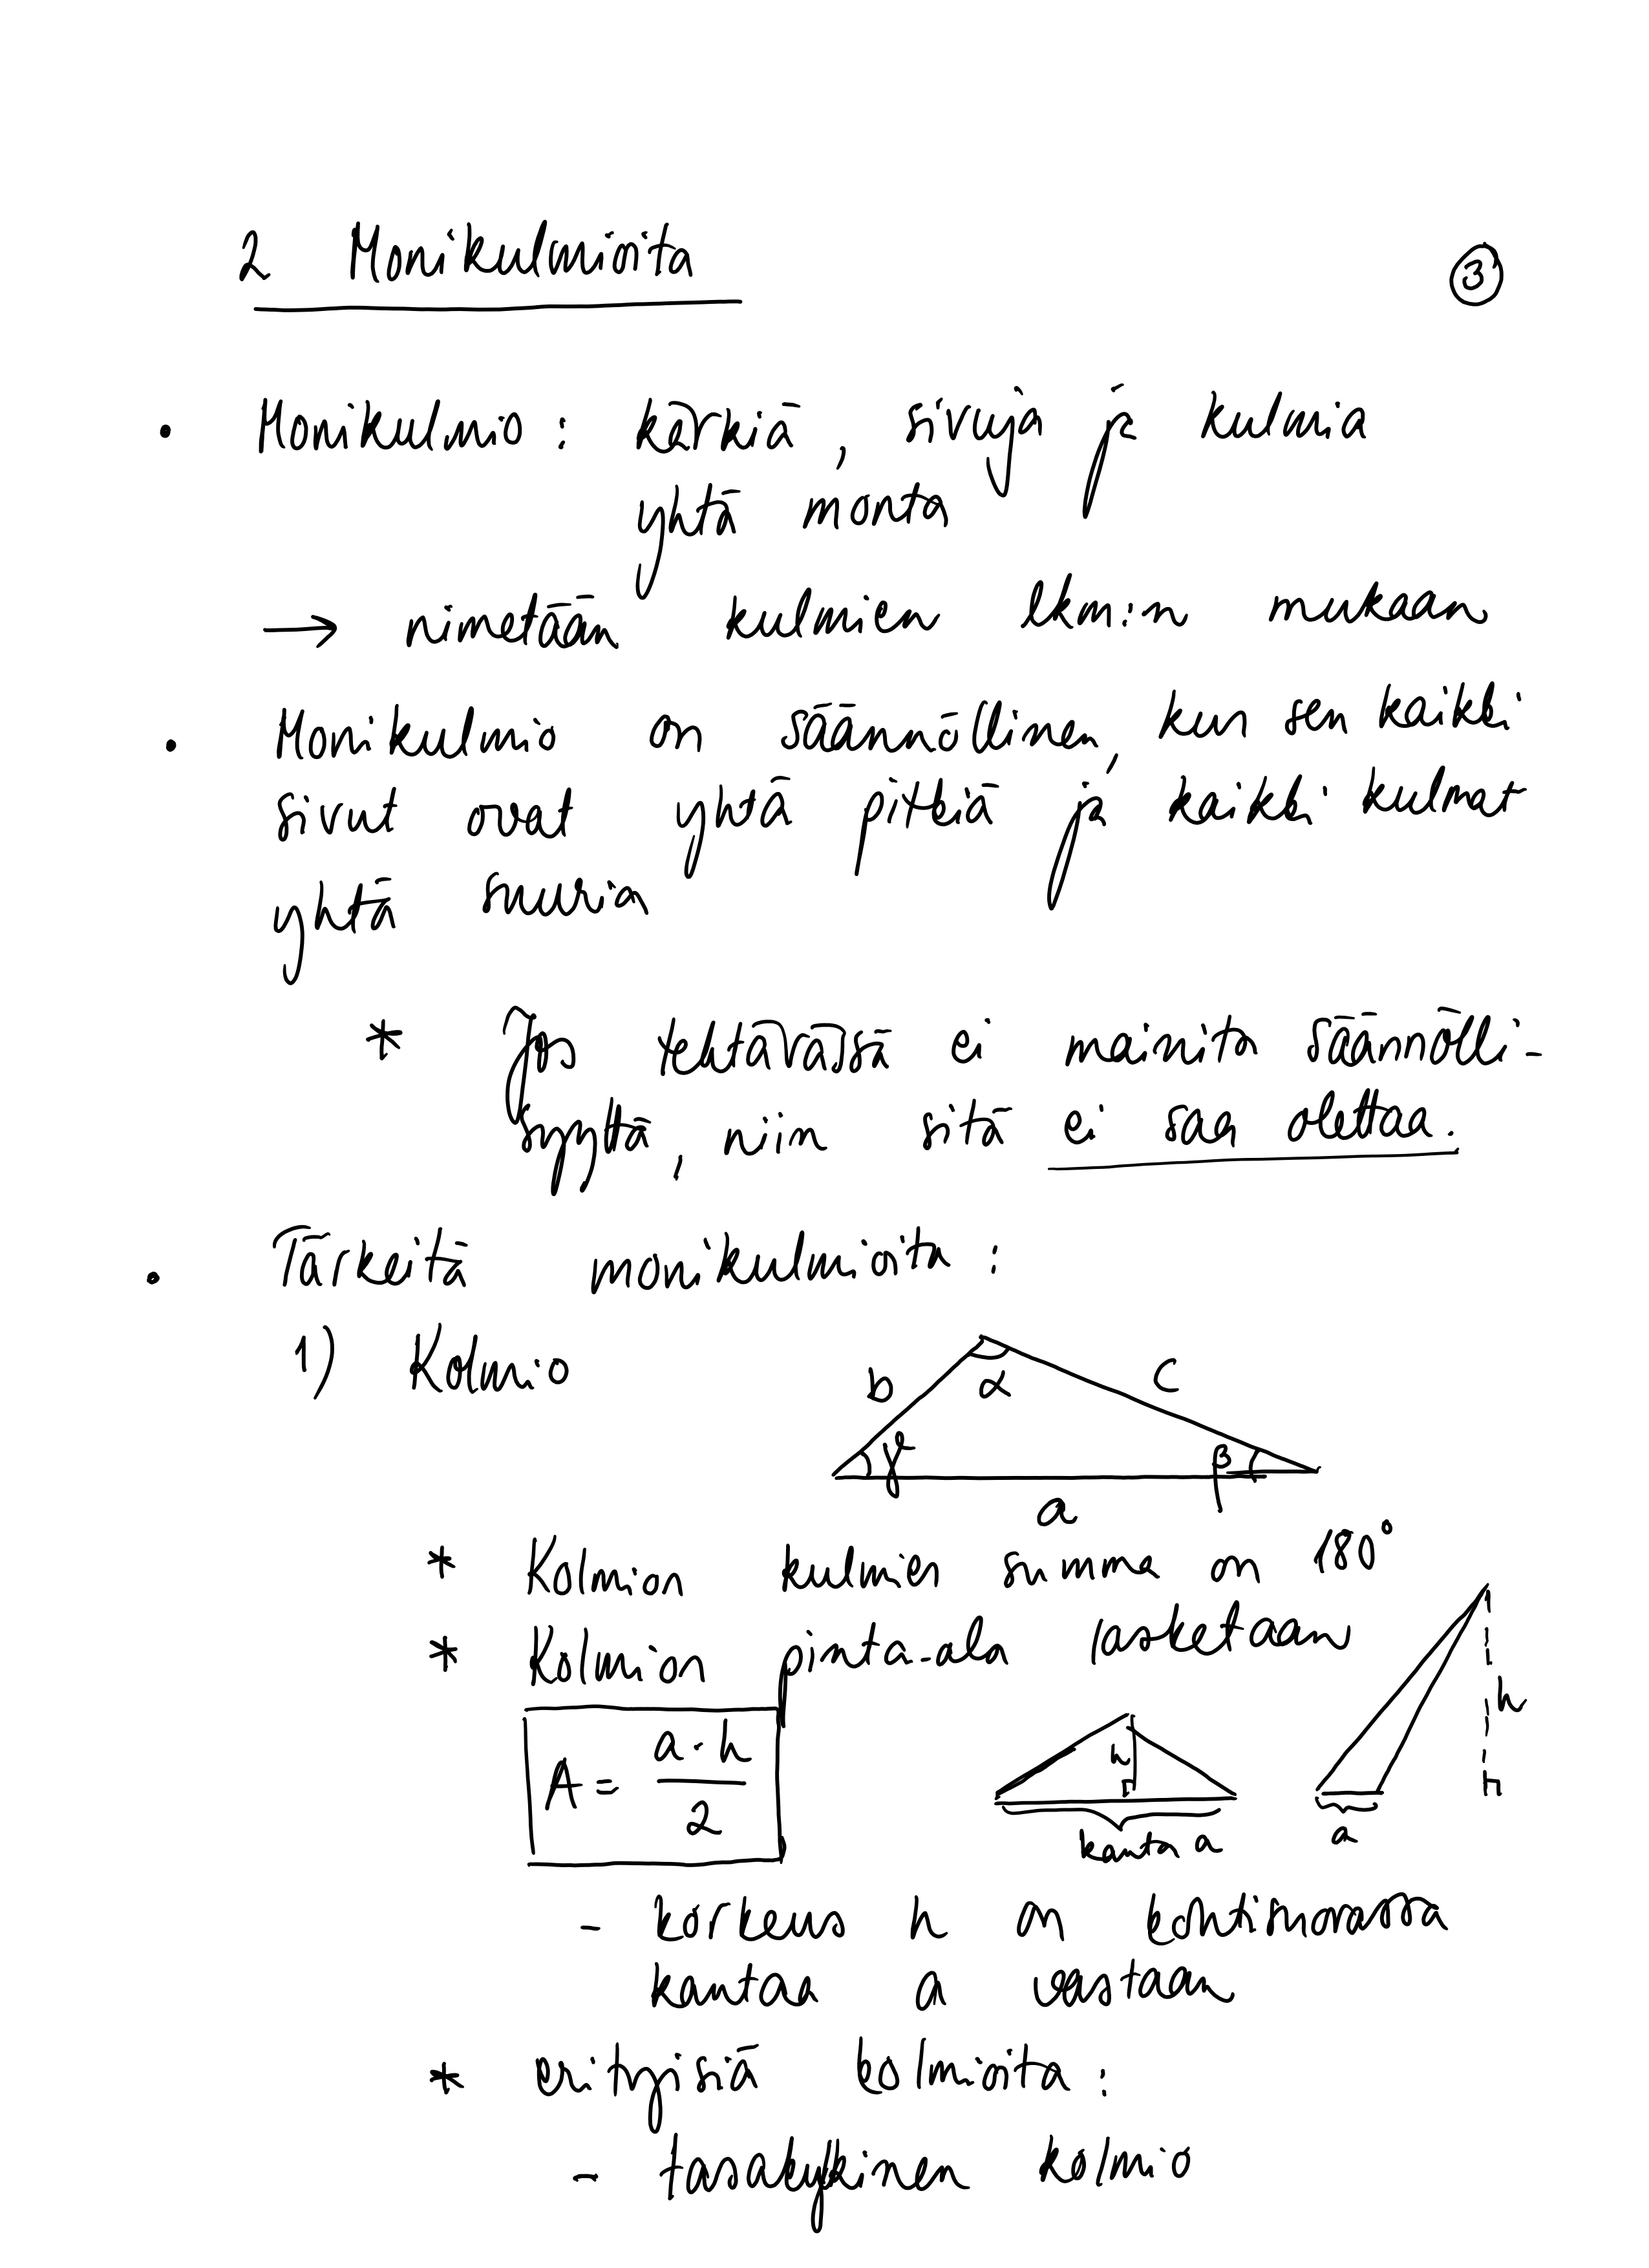 2 Monikulmioita
3
• Monikulmio : kärkiä, sivuja ja kulmia
yhtä monta
→ nimetään kulmien lkm:n mukaan
• Monikulmio on säännöllinen, kun sen kaikki
sivut ovat yhtä pitkiä ja kaikki kulmat
yhtä suuria
* Jos tehtävässä ei mainita säännölli-
syyttä, niin sitä ei saa olettaa.
• Tärkeitä monikulmioita :
1) Kolmio
b α c
γ β
a
* Kolmion kulmien summa on 180°
* Kolmion pinta-ala lasketaan
A = a·h / 2
h
kanta a
h
a
- korkeus h on kohtisuorassa
kantaa a vastaan
* erityisiä kolmioita :
- tasakylkinen kolmio